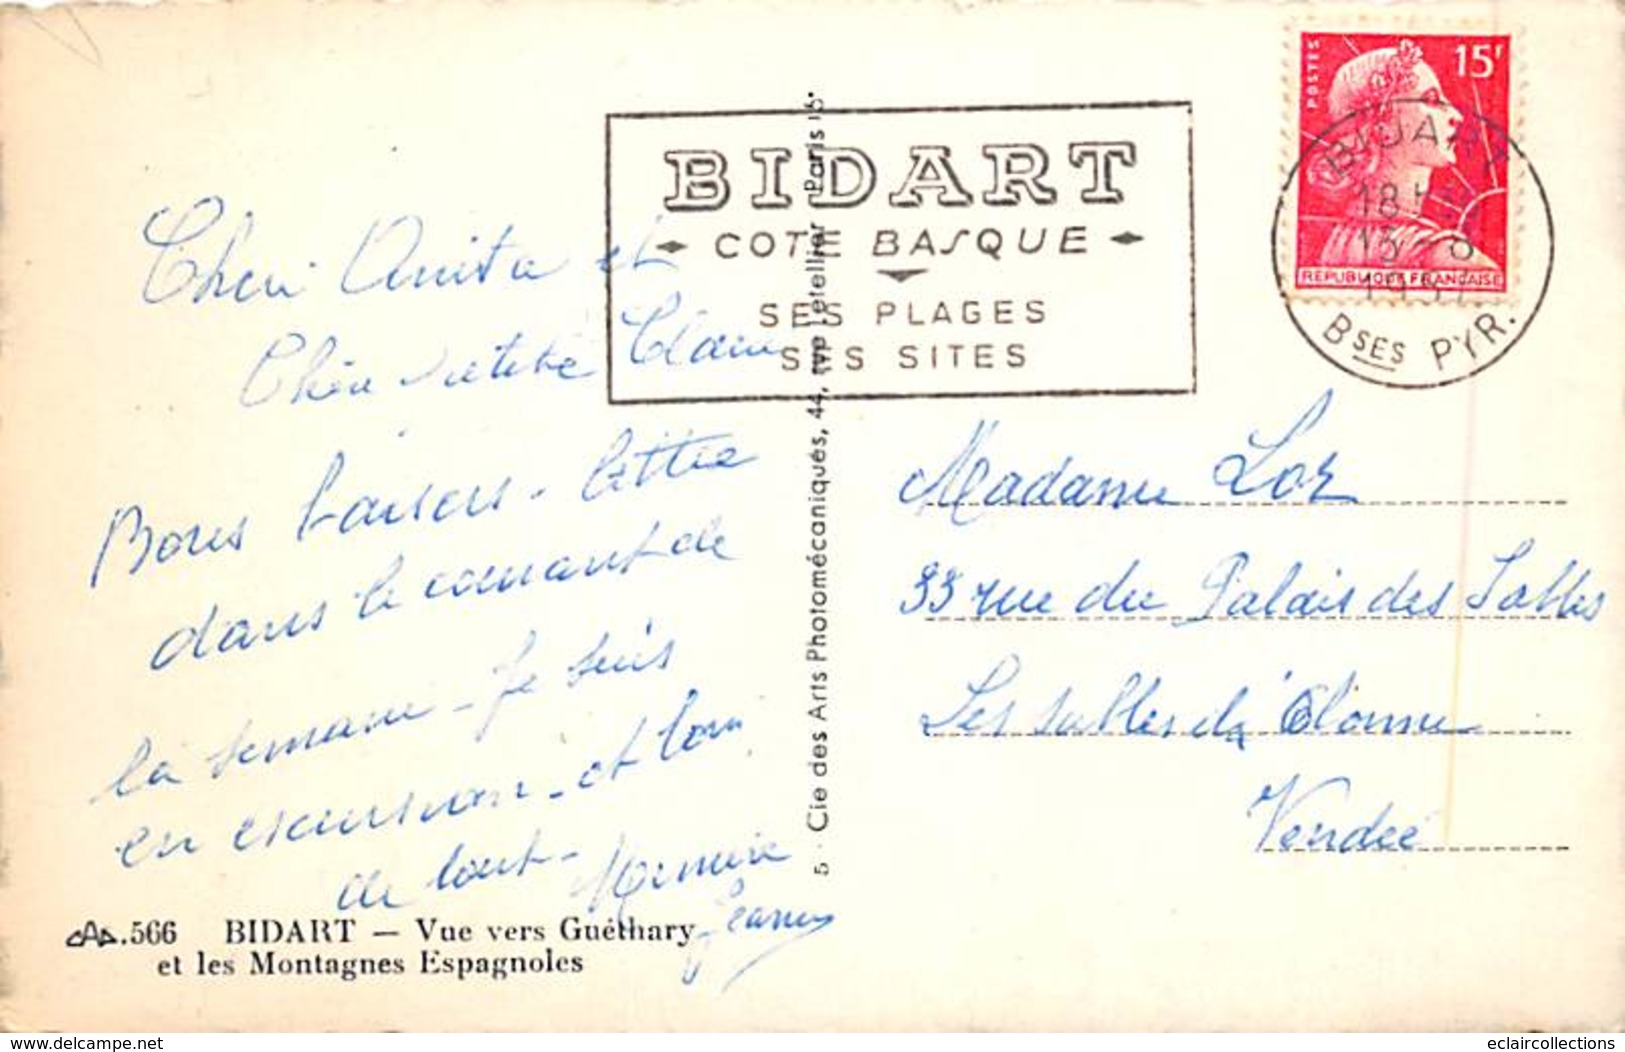 BIDART
COTE BASQUE
SES PLAGES
SES SITES
15F
POSTES
REPUBLIQUE FRANÇAISE
BIDART
18 H
1957
BSES PYR.
Anita et
Claire
Bons baisers - lettre
dans le courant de
la semaine - Je suis
en excursion - et loin
de tout -
Madame Lor
33 rue du Palais des Sables
Les Sables d'Olonne
Vendée
5 - Cie des Arts Photomécaniques, 44, rue Letellier Paris 15e
566 BIDART — Vue vers Guéthary
et les Montagnes Espagnoles
www.delcampe.net
eclaircollections